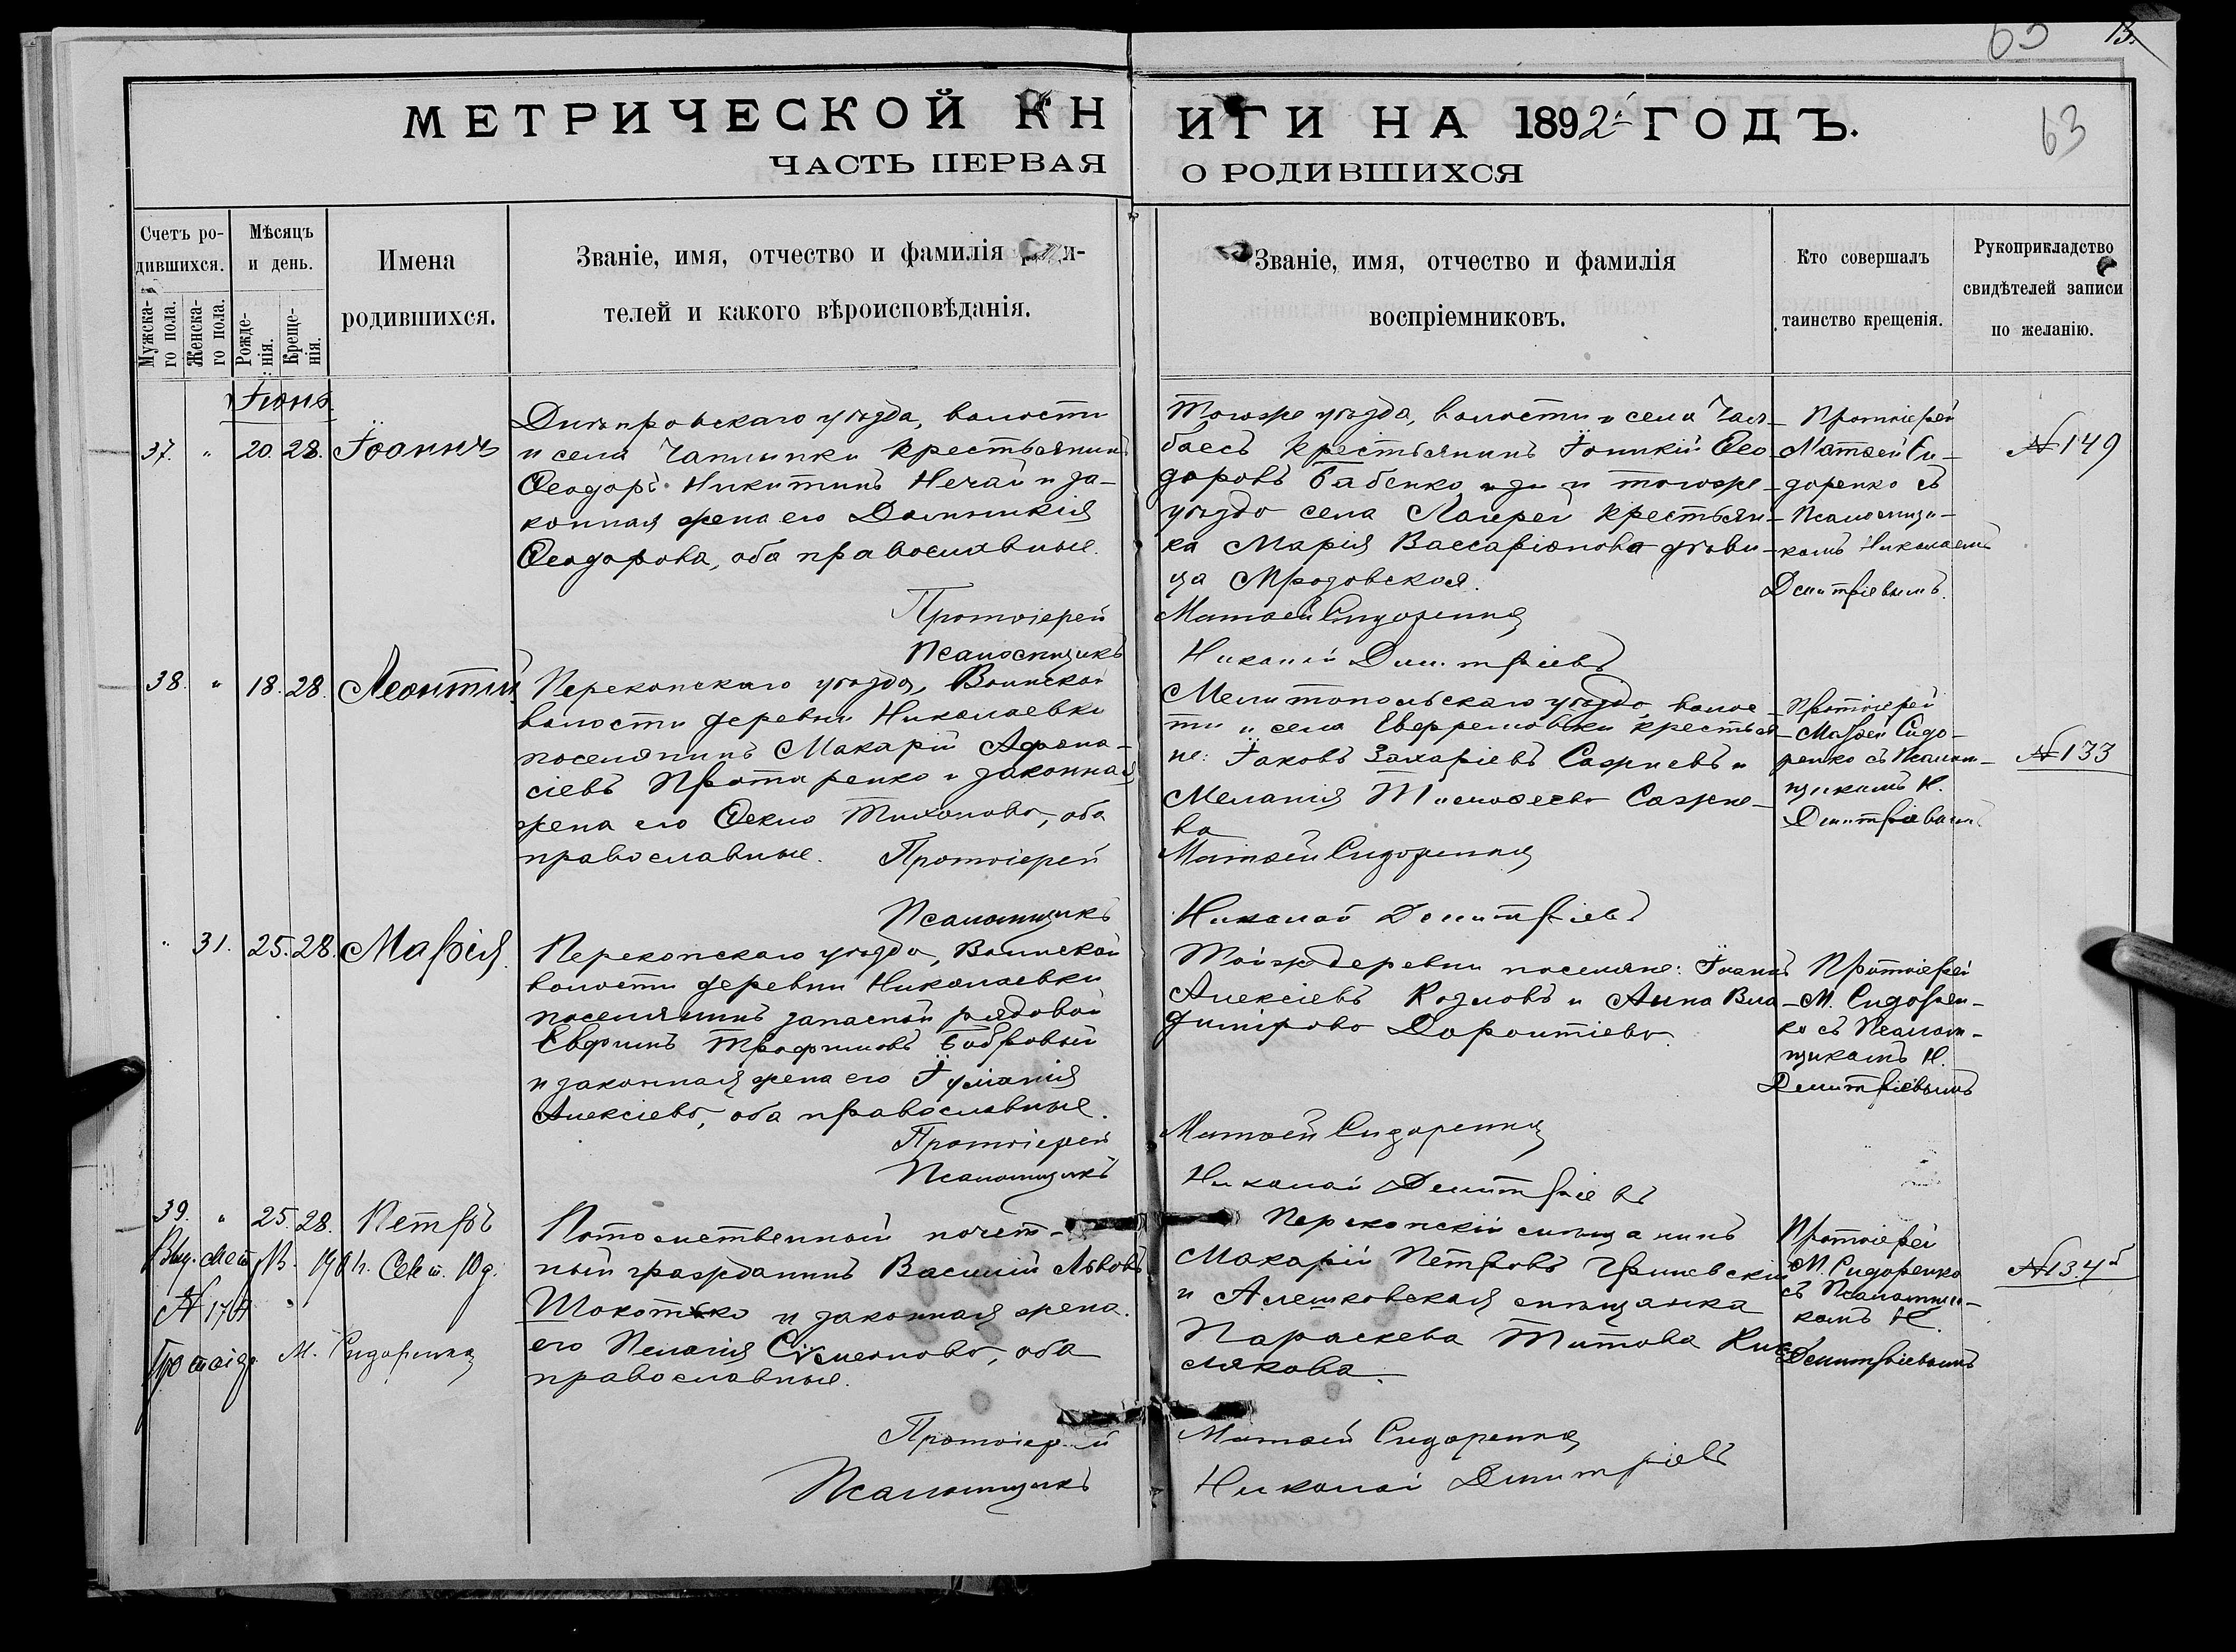 63 13.
МЕТРИЧЕСКОЙ КН ИГИ НА 1892 ГОДЪ.
63
ЧАСТЬ ПЕРВАЯ О РОДИВШИХСЯ
Счетъ ро-
дившихся.
Мужска-
го пола.
Женска-
го пола.
Мѣсяцъ
и день.
Рожде-
нія.
Креще-
нія.
Имена
родившихся.
Званіе, имя, отчество и фамилія
телей и какого вѣроисповѣданія.
Званіе, имя, отчество и фамилія
воспріемниковъ.
Кто совершалъ
таинство крещенія.
Рукоприкладство
свидѣтелей записи
по желанію.
Іюня
37. " 20. 28. Іоаннъ
Днѣпровскаго уѣзда, волости
и села Чаплинки крестьянинъ
Ѳеодоръ Никитинъ Нечай и за-
конная жена его Домникія
Ѳеодорова, оба православные.
Протоіерей
Псаломщикъ
Тогоже уѣзда, волости и села Чал-
басъ крестьянинъ Іоникій Ѳео-
доровъ Бабенко и тогоже
уѣзда села крестьян-
ка Марія Вассаріонова дѣви-
ца Мрозовская.
Матѳей Сидоренко
Николай Димитріевъ
Протоіерей
Матѳей Си-
доренко съ
Псаломщи-
комъ Николаемъ
Димитріевымъ.
№149
38. " 18. 28. Леонтій
Перекопскаго уѣзда, Воинской
волости деревни Николаевки
поселянинъ Макарій Аѳана-
сіевъ и законная
жена его Ѳекла Тихонова, оба
православные. Протоіерей
Псаломщикъ
Мелитопольскаго уѣзда волос-
ти и села Ефремовки крестья-
не: Іаковъ Захаріевъ и
Меланія Тимоѳеева
ва
Матѳей Сидоренко
Николай Димитріевъ
Протоіерей
Матѳей Сидо-
ренко съ Псалом-
щикомъ Н.
Димитріевымъ
№133
" 31. 25. 28. Марія.
Перекопскаго уѣзда, Воинской
волости деревни Николаевки
поселянинъ запасной рядовой
Евфимъ Трофимовъ Бобровый
и законная жена его Іуліанія
Алексіева, оба православные.
Протоіерей
Псаломщикъ
Тойже деревни поселяне: Іоаннъ
Алексіевъ Козловъ и Анна Вла-
димірова Доронтіева.
Матѳей Сидоренко
Николай Димитріевъ
Протоіерей
М. Сидорен-
ко съ Псалом-
щикомъ Н.
Димитріевымъ
39. " 25. 28. Петръ
Выд. мет. 1904 г. Сент. 10 д.
№ 170
Протоіер. М. Сидоренко
Потомственный почет-
ный гражданинъ Василій Львовъ
Шокотько и законная жена
его Пелагія Симеонова, оба
православные.
Протоіерей
Псаломщикъ
Перекопскій мѣщанинъ
Макарій Петровъ Гришевскій
и Алешковская мѣщанка
Параскева Титова Кис-
лякова.
Матѳей Сидоренко
Николай Димитріевъ
Протоіерей
М. Сидоренко
съ Псаломщи-
комъ Н.
Димитріевымъ
№134